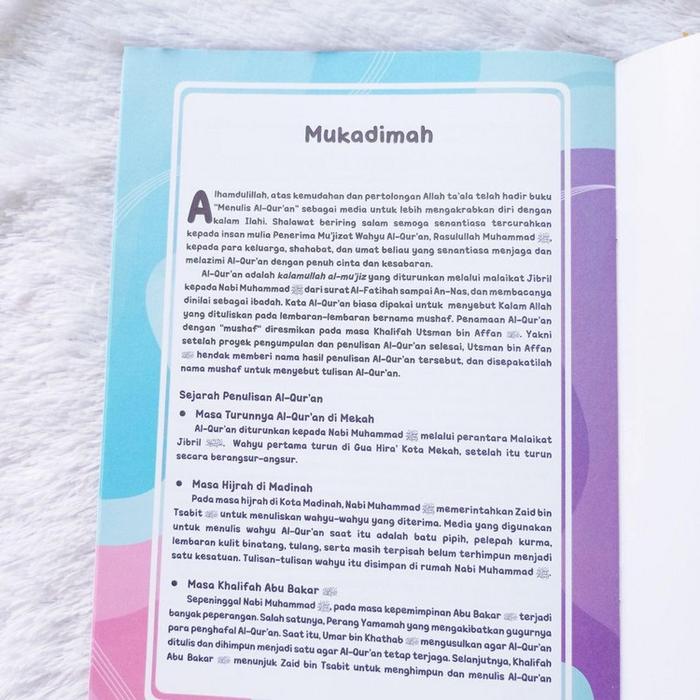 Mukadimah
Alhamdulillah, atas kemudahan dan pertolongan Allah ta'ala telah hadir buku
"Menulis Al-Qur'an" sebagai media untuk lebih mengakrabkan diri dengan
kalam Ilahi. Shalawat beriring salam semoga senantiasa tercurahkan
kepada insan mulia Penerima Mu'jizat Wahyu Al-Qur'an, Rasulullah Muhammad ﷺ,
kepada para keluarga, shahabat, dan umat beliau yang senantiasa menjaga dan
melazimi Al-Qur'an dengan penuh cinta dan kesabaran.
Al-Qur'an adalah kalamullah al-mu'jiz yang diturunkan melalui malaikat Jibril
kepada Nabi Muhammad ﷺ dari surat Al-Fatihah sampai An-Nas, dan membacanya
dinilai sebagai ibadah. Kata Al-Qur'an biasa dipakai untuk menyebut Kalam Allah
yang dituliskan pada lembaran-lembaran bernama mushaf. Penamaan Al-Qur'an
dengan "mushaf" diresmikan pada masa Khalifah Utsman bin Affan. Yakni
setelah proyek pengumpulan dan penulisan Al-Qur'an selesai, Utsman bin Affan
hendak memberi nama hasil penulisan Al-Qur'an tersebut, dan disepakatilah
nama mushaf untuk menyebut tulisan Al-Qur'an.
Sejarah Penulisan Al-Qur'an
• Masa Turunnya Al-Qur'an di Mekah
Al-Qur'an diturunkan kepada Nabi Muhammad ﷺ melalui perantara Malaikat
Jibril. Wahyu pertama turun di Gua Hira' Kota Mekah, setelah itu turun
secara berangsur-angsur.
• Masa Hijrah di Madinah
Pada masa hijrah di Kota Madinah, Nabi Muhammad ﷺ memerintahkan Zaid bin
Tsabit untuk menuliskan wahyu-wahyu yang diterima. Media yang digunakan
untuk menulis wahyu Al-Qur'an saat itu adalah batu pipih, pelepah kurma,
lembaran kulit binatang, tulang, serta masih terpisah belum terhimpun menjadi
satu kesatuan. Tulisan-tulisan wahyu itu disimpan di rumah Nabi Muhammad ﷺ.
• Masa Khalifah Abu Bakar
Sepeninggal Nabi Muhammad ﷺ, pada masa kepemimpinan Abu Bakar terjadi
banyak peperangan. Salah satunya, Perang Yamamah yang mengakibatkan gugurnya
para penghafal Al-Qur'an. Saat itu, Umar bin Khathab mengusulkan agar Al-Qur'an
ditulis dan dihimpun menjadi satu agar Al-Qur'an tetap terjaga. Selanjutnya, Khalifah
Abu Bakar menunjuk Zaid bin Tsabit untuk menghimpun dan menulis Al-Qur'an